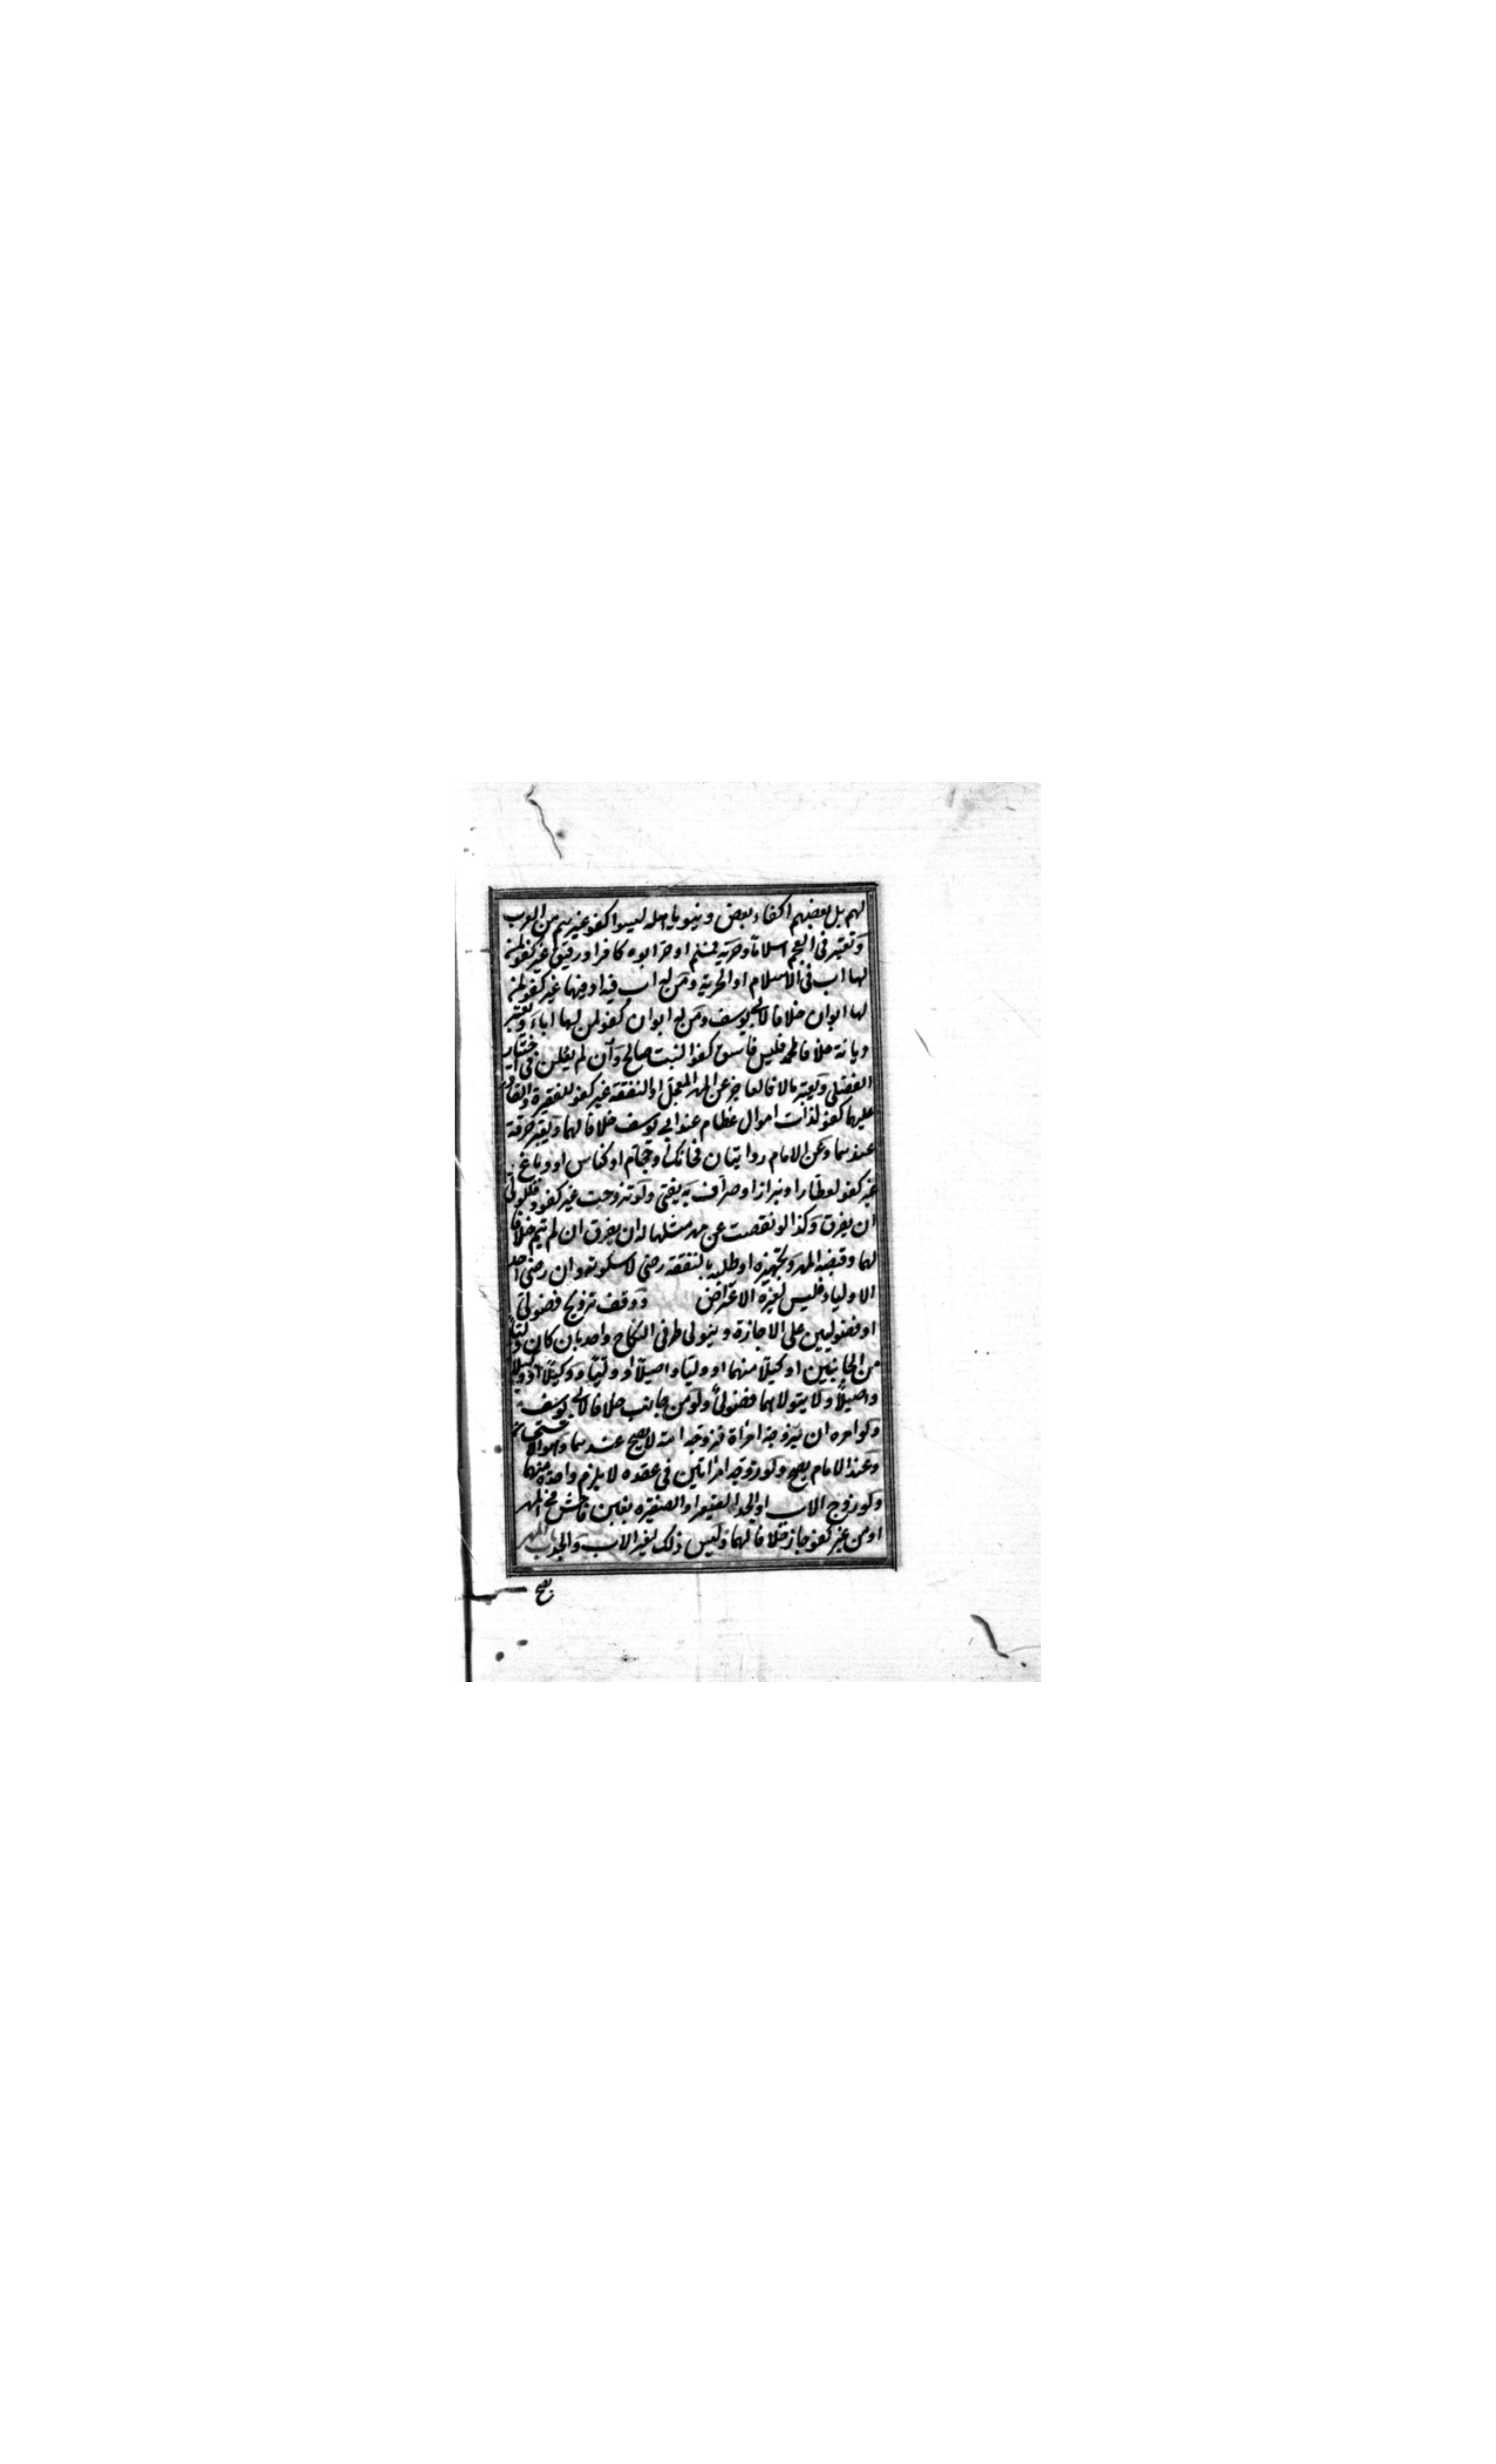 لهم بل بعضهم اكفاء بعض وبنو باهلة ليسوا كفو غيرهم من العرب
وتعتبر فى العجم اسلاما وحرية فمسلم او حر ابوه كافر او رقيق غير كفو لمن
لها اب فى الاسلام او الحرية ومن له اب فيه او فيهما غير كفو لمن
لها ابوان خلافا لابي يوسف ومن له ابوان كفو لمن لها اباء وتعتبر
ديانة خلافا لمحمد فليس فاسق كفوا لبنت صالح وان لم يعلن فى اختيار
الفضلى وتعتبر مالا فالعاجز عن المهر المعجل او النفقة غير كفو للفقيرة والقادر
عليهما كفو لذات اموال عظام عند ابى يوسف خلافا لهما وتعتبر حرفة
عندهما وعن الامام روايتان فحائك او حجام او كناس او دباغ
غير كفو لعطار او بزاز او صراف به يفتى ولو تزوجت غير كفو فللولى
ان يفرق وكذا لو نقصت عن مهر مثلها له ان يفرق ان لم يتم خلافا
لهما وقبضه المهر وتجهيزه او طلبه بالنفقة رضى لا سكوته وان رضى احد
الاولياء فليس لغيره الاعتراض ووقف تزويج فضولى
او فضوليين على الاجازة ويتولى طرفى النكاح واحد بان كان وليا
من الجانبين او وكيلا منهما او وليا واصيلا او وليا ووكيلا او وكيلا
واصيلا ولا يتولاهما فضولى ولو من جانب خلافا لابى يوسف
ولو امره ان يزوجه امرأة فزوجه امة لا يصح عندهما وهو الاستحسان
وعند الامام يصح ولو زوجه امرأتين فى عقدة لا يلزم واحدة منهما
ولو زوج الاب او الجد الصغير او الصغيرة بغبن فاحش فى المهر
او من غير كفو جاز خلافا لهما وليس ذلك لغير الاب والجد
يصح